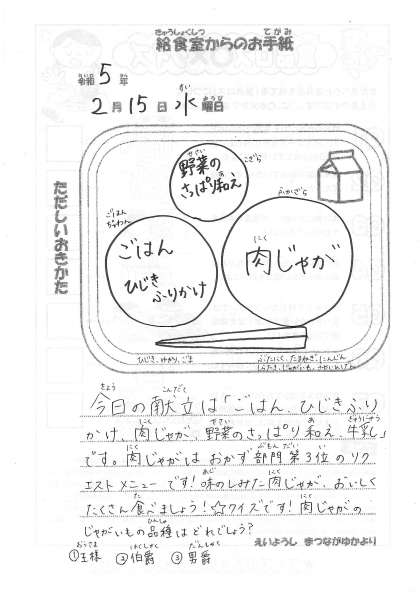 給食室からのお手紙
令和5年
2月15日水曜日
ただしいおきかた
野菜のさっぱり和え
こざら
ふかざら
ごはんちゃわん
ごはん
ひじきふりかけ
肉じゃが
ひじき、ゆかり、ごま
ぶたにく、たまねぎ、にんじん
しらたき、じゃがいも、
今日の献立は「ごはん、ひじきふり
かけ、肉じゃが、野菜のさっぱり和え、牛乳」
です。肉じゃがはおかず部門第3位のリク
エストメニューです!味のしみた肉じゃが、おいしく
たくさん食べましょう!☆クイズです!肉じゃがの
じゃがいもの品種はどれでしょう?
①王様 ②伯爵 ③男爵
えいようし まつながゆかより